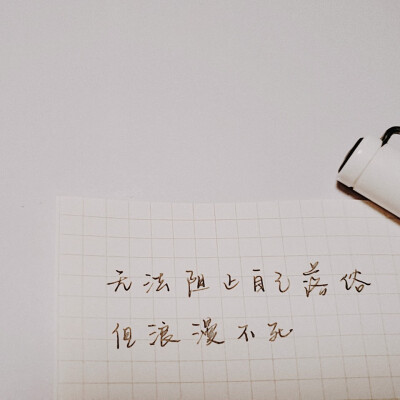 无法阻止自己落俗
但浪漫不死